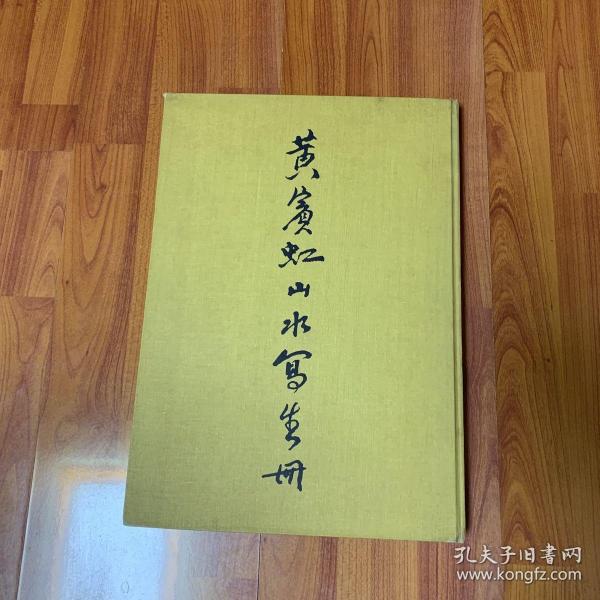 黄賓虹山水寫生冊
孔夫子旧書网
www.kongfz.com